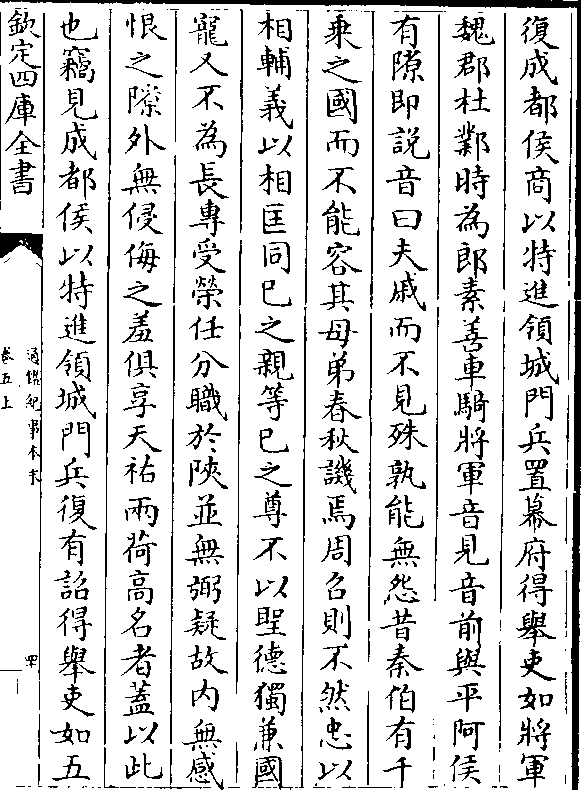 復成都侯商以特進領城門兵置幕府得舉吏如將軍
魏郡杜鄴時為郎素善車騎將軍音見音前與平阿侯
有隙即説音曰夫戚而不見殊孰能無怨昔秦伯有千
乗之國而不能容其母弟春秋譏焉周召則不然忠以
相輔義以相匡同已之親等已之尊不以聖德獨兼國
寵又不為長專受榮任分職於陜並無弼疑故内無感
恨之隙外無侵侮之羞俱享天祐兩荷高名者蓋以此
也竊見成都侯以特進領城門兵復有詔得舉吏如五
欽定四庫全書
通鑑紀事本末
卷五上
四